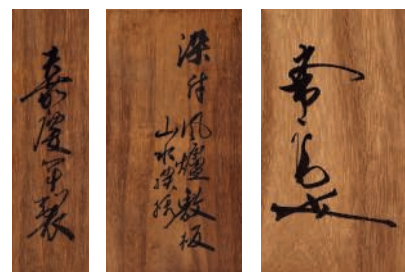 嘉慶年製
染付風爐敷板
山水模様